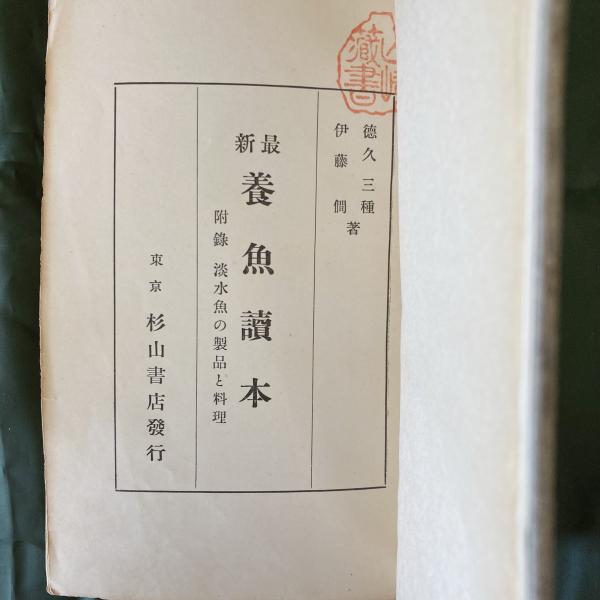 德久三種
伊藤僩 著
最新 養魚讀本
附錄 淡水魚の製品と料理
東京 杉山書店發行
藏書